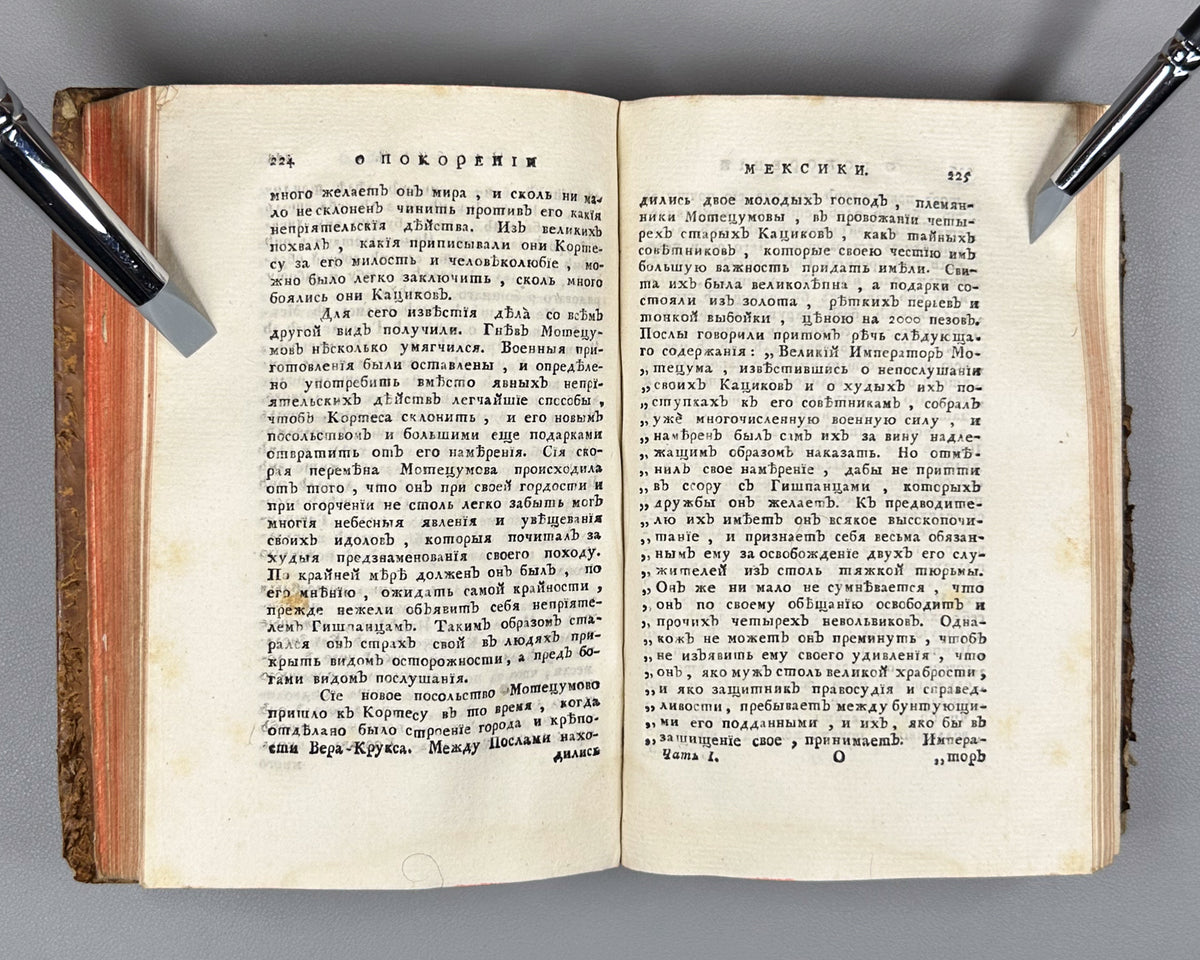 224 О ПОКОРЕНІИ
много желаетъ онъ мира , и сколь ни ма-
ло не склоненъ чинить противъ его какія
непріятельскія дѣйства. Изъ великихъ
похвалъ , какія приписывали они Корте-
су за его милость и человѣколюбіе , мо-
жно было легко заключить , сколь много
боялись они Кациковъ.
Для сего извѣстія дѣла со всѣмъ
другой видъ получили. Гнѣвъ Мотецу-
мовъ нѣсколько умягчился. Военныя при-
готовленія были оставлены , и опредѣле-
но употребить вмѣсто явныхъ непрі-
ятельскихъ дѣйствъ легчайшіе способы ,
чтобъ Кортеса склонить , и его новымъ
посольствомъ и большими еще подарками
отвратить отъ его намѣренія. Сія ско-
рая перемѣна Мотецумова происходила
отъ того , что онъ при своей гордости и
при огорченіи не столь легко забыть могъ
многія небесныя явленія и увѣщеванія
своихъ идоловъ , которыя почиталъ за
худыя предзнаменованія своего походу.
По крайней мѣрѣ долженъ онъ былъ , по
его мнѣнію , ожидать самой крайности ,
прежде нежели объявить себя непріяте-
лемъ Гишпанцамъ. Такимъ образомъ ста-
рался онъ страхъ свой въ людяхъ при-
крыть видомъ осторожности, а предъ бо-
гами видомъ послушанія.
Сіе новое посольство Мотецумово
пришло къ Кортесу въ то время , когда
отдѣлано было строеніе города и крѣпо-
сти Вера-Крукса. Между Послами нахо-
дились
МЕКСИКИ. 225
дились двое молодыхъ господъ , племян-
ники Мотецумовы , въ провожаніи четы-
рехъ старыхъ Кациковъ , какъ тайныхъ
совѣтниковъ , которые своею честію имъ
большую важность придать имѣли. Сви-
та ихъ была великолѣпна , а подарки со-
стояли изъ золота , рѣткихъ перьевъ и
тонкой выбойки , цѣною на 2000 пезовъ.
Послы говорили притомъ рѣчь слѣдующа-
го содержанія : „ Великій Императоръ Мо-
„ тецума , извѣстившись о непослушаніи
„ своихъ Кациковъ и о худыхъ ихъ по-
„ ступкахъ къ его совѣтникамъ , собралъ
„ уже многочисленную военную силу , и
„ намѣренъ былъ самъ ихъ за вину надле-
„ жащимъ образомъ наказать. Но отмѣ-
„ нилъ свое намѣреніе , дабы не притти
„ въ ссору съ Гишпанцами , которыхъ
„ дружбы онъ желаетъ. Къ предводите-
„ лю ихъ имѣетъ онъ всякое высокопочи-
„ таніе , и признаетъ себя весьма обязан-
„ нымъ ему за освобожденіе двухъ его слу-
„ жителей изъ столь тяжкой тюрьмы.
„ Онъ же ни мало не сумнѣвается , что
„ онъ по своему обѣщанію освободитъ и
„ прочихъ четырехъ невольниковъ. Одна-
„ кожъ не можетъ онъ преминуть , чтобъ
„ не изъявить ему своего удивленія , что
„ онъ , яко мужъ столь великой храбрости ,
„ и яко защитникъ правосудія и справед-
„ ливости, пребываетъ между бунтующи-
„ ми его подданными , и ихъ , яко бы въ
„ защищеніе свое , принимаетъ. Импера-
Часть I. О „торъ